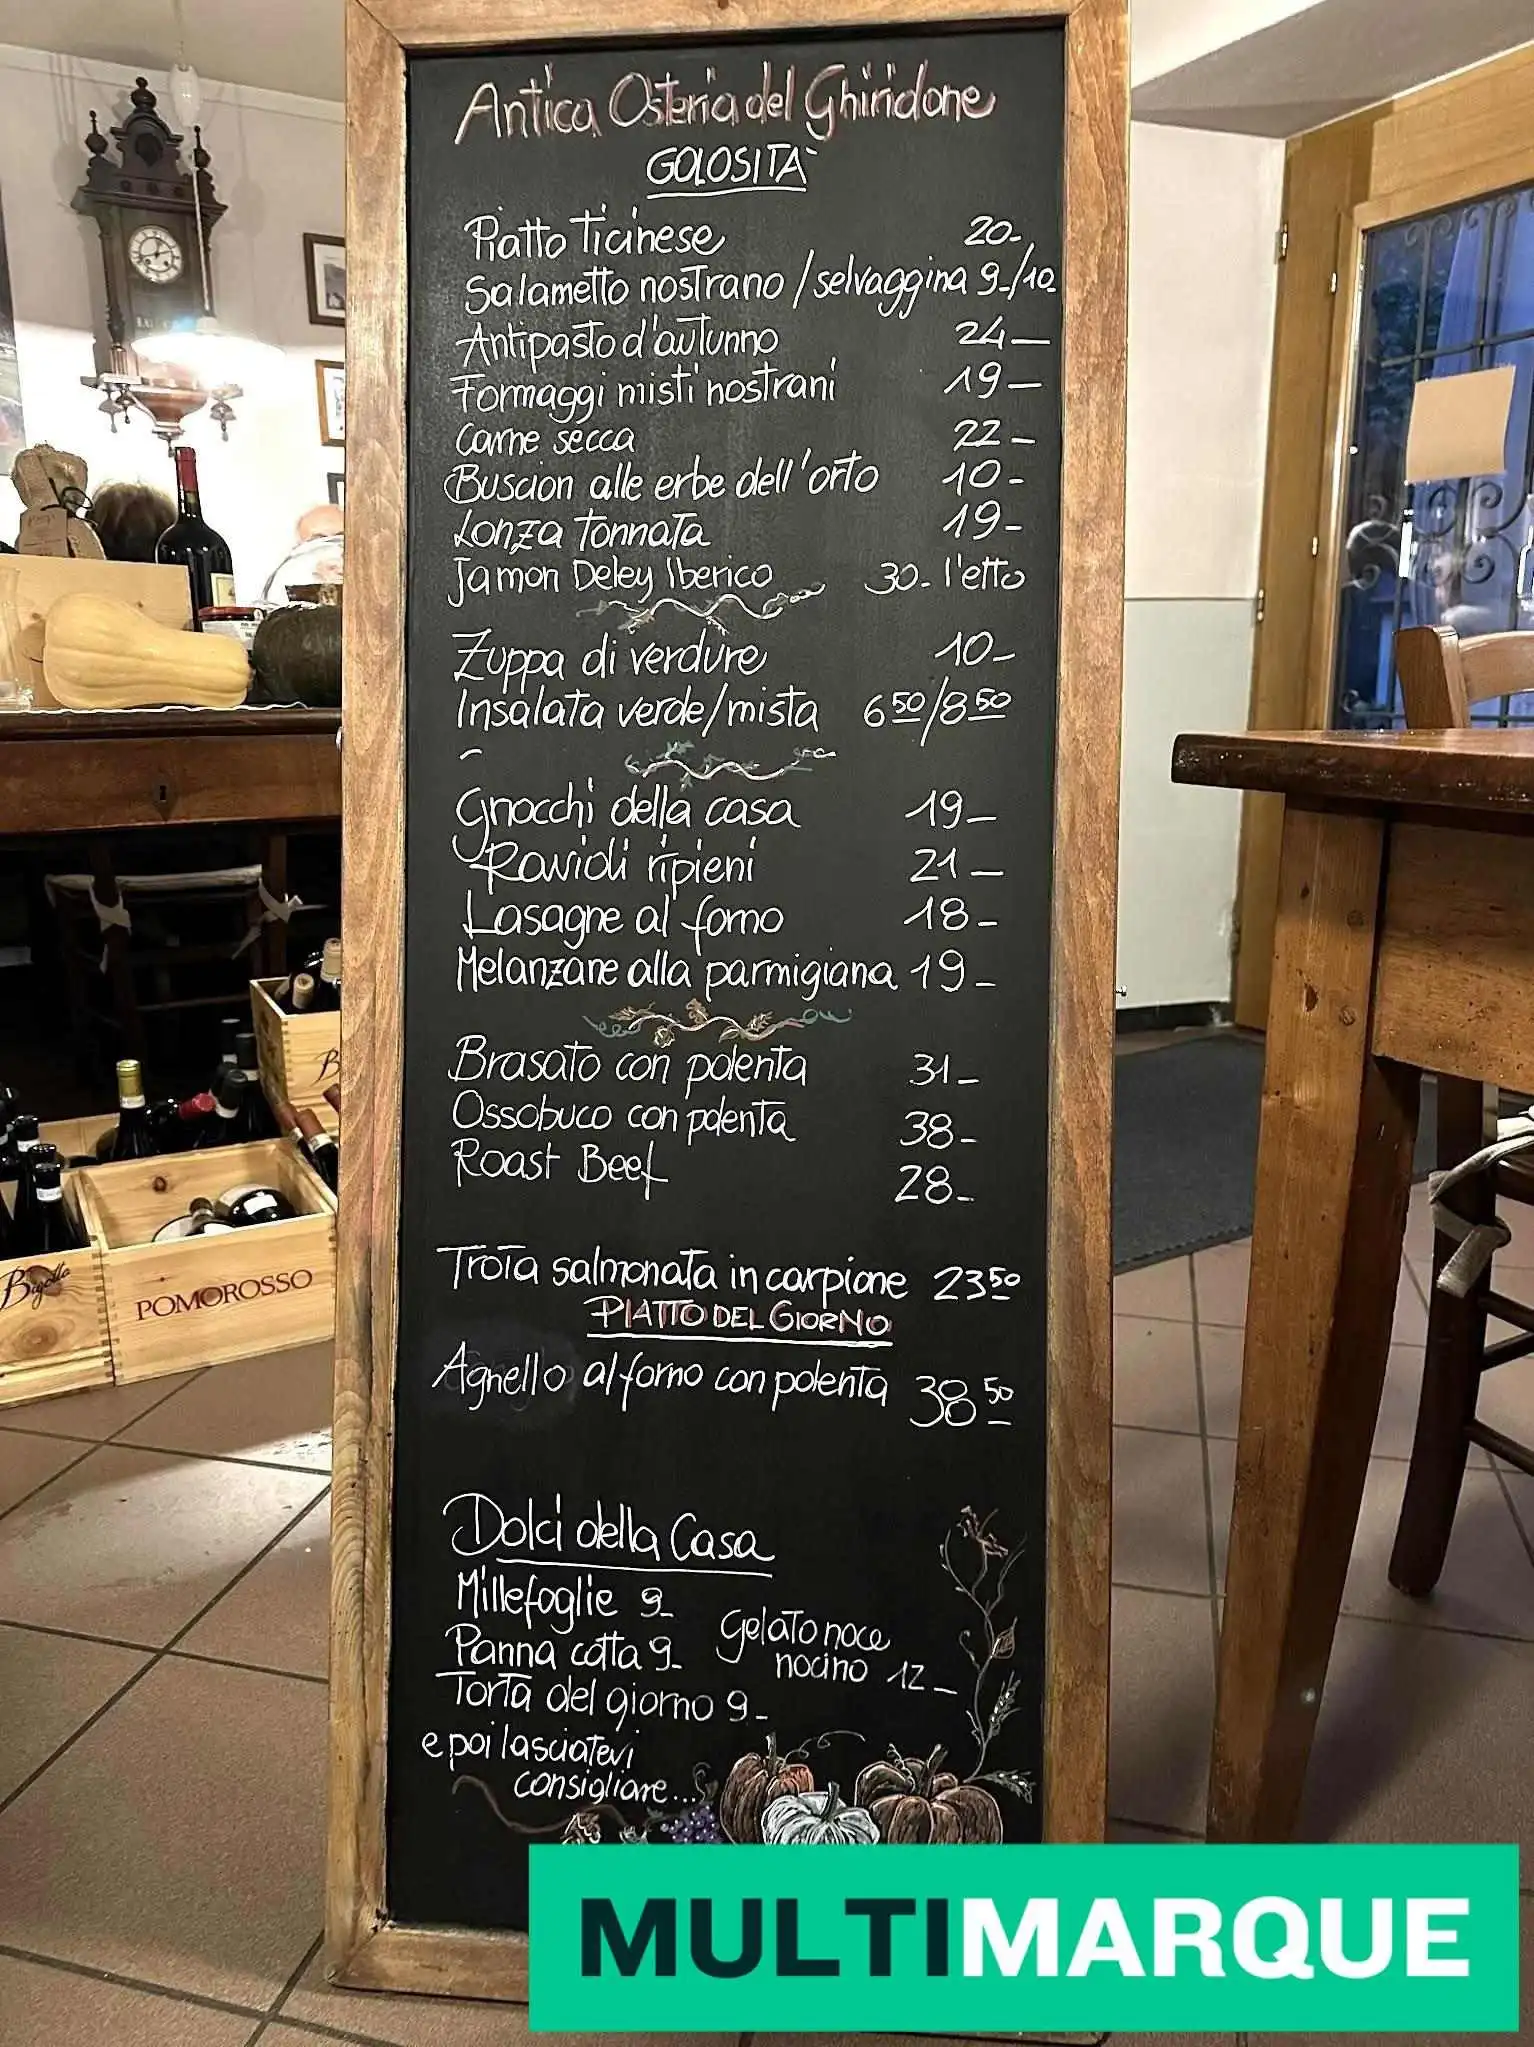 Antica Osteria del Ghiridone
GOLOSITÀ
Piatto Ticinese 20-
Salametto nostrano / selvaggina 9-/10-
Antipasto d'autunno 24-
Formaggi misti nostrani 19-
Carne secca 22-
Buscion alle erbe dell'orto 10-
Lonza tonnata 19-
Jamon Deley Iberico 30- l'etto
Zuppa di verdure 10-
Insalata verde/mista 6 50/8 50
Gnocchi della casa 19-
Ravioli ripieni 21-
Lasagne al forno 18-
Melanzane alla parmigiana 19-
Brasato con polenta 31-
Ossobuco con polenta 38-
Roast Beef 28-
Trota salmonata in carpione 23 50
PIATTO DEL GIORNO
Agnello al forno con polenta 38 50
Dolci della Casa
Millefoglie 9-
Panna cotta 9-
Gelato noce
nocino 12-
Torta del giorno 9-
e poi lasciatevi
consigliare...
POMOROSSO
MULTIMARQUE